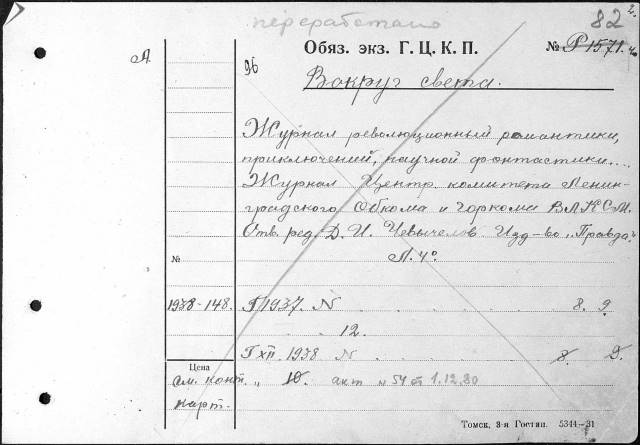 переработано
82 2.
А.
Обяз. экз. Г. Ц. К. П. № Р1571.
96
Вокруг света.
Журнал революционный романтики,
приключений, научной фантастики....
Журнал Центр. комитета Ленин-
градского Обкома и Горкома ВЛКСМ.
Отв. ред. Д. И. Чевычелов Изд-во „Правда"
Л. 4°.
№
1938-148. Г1937. N . . . . . 8. 9
. 12.
Г XII. 1938 N . . . . . 8. 9.
Цена
см. конт. „ 10. акт N 54 от 1.12.80
карт.
Томск, 3-я Гостип. 5344—31